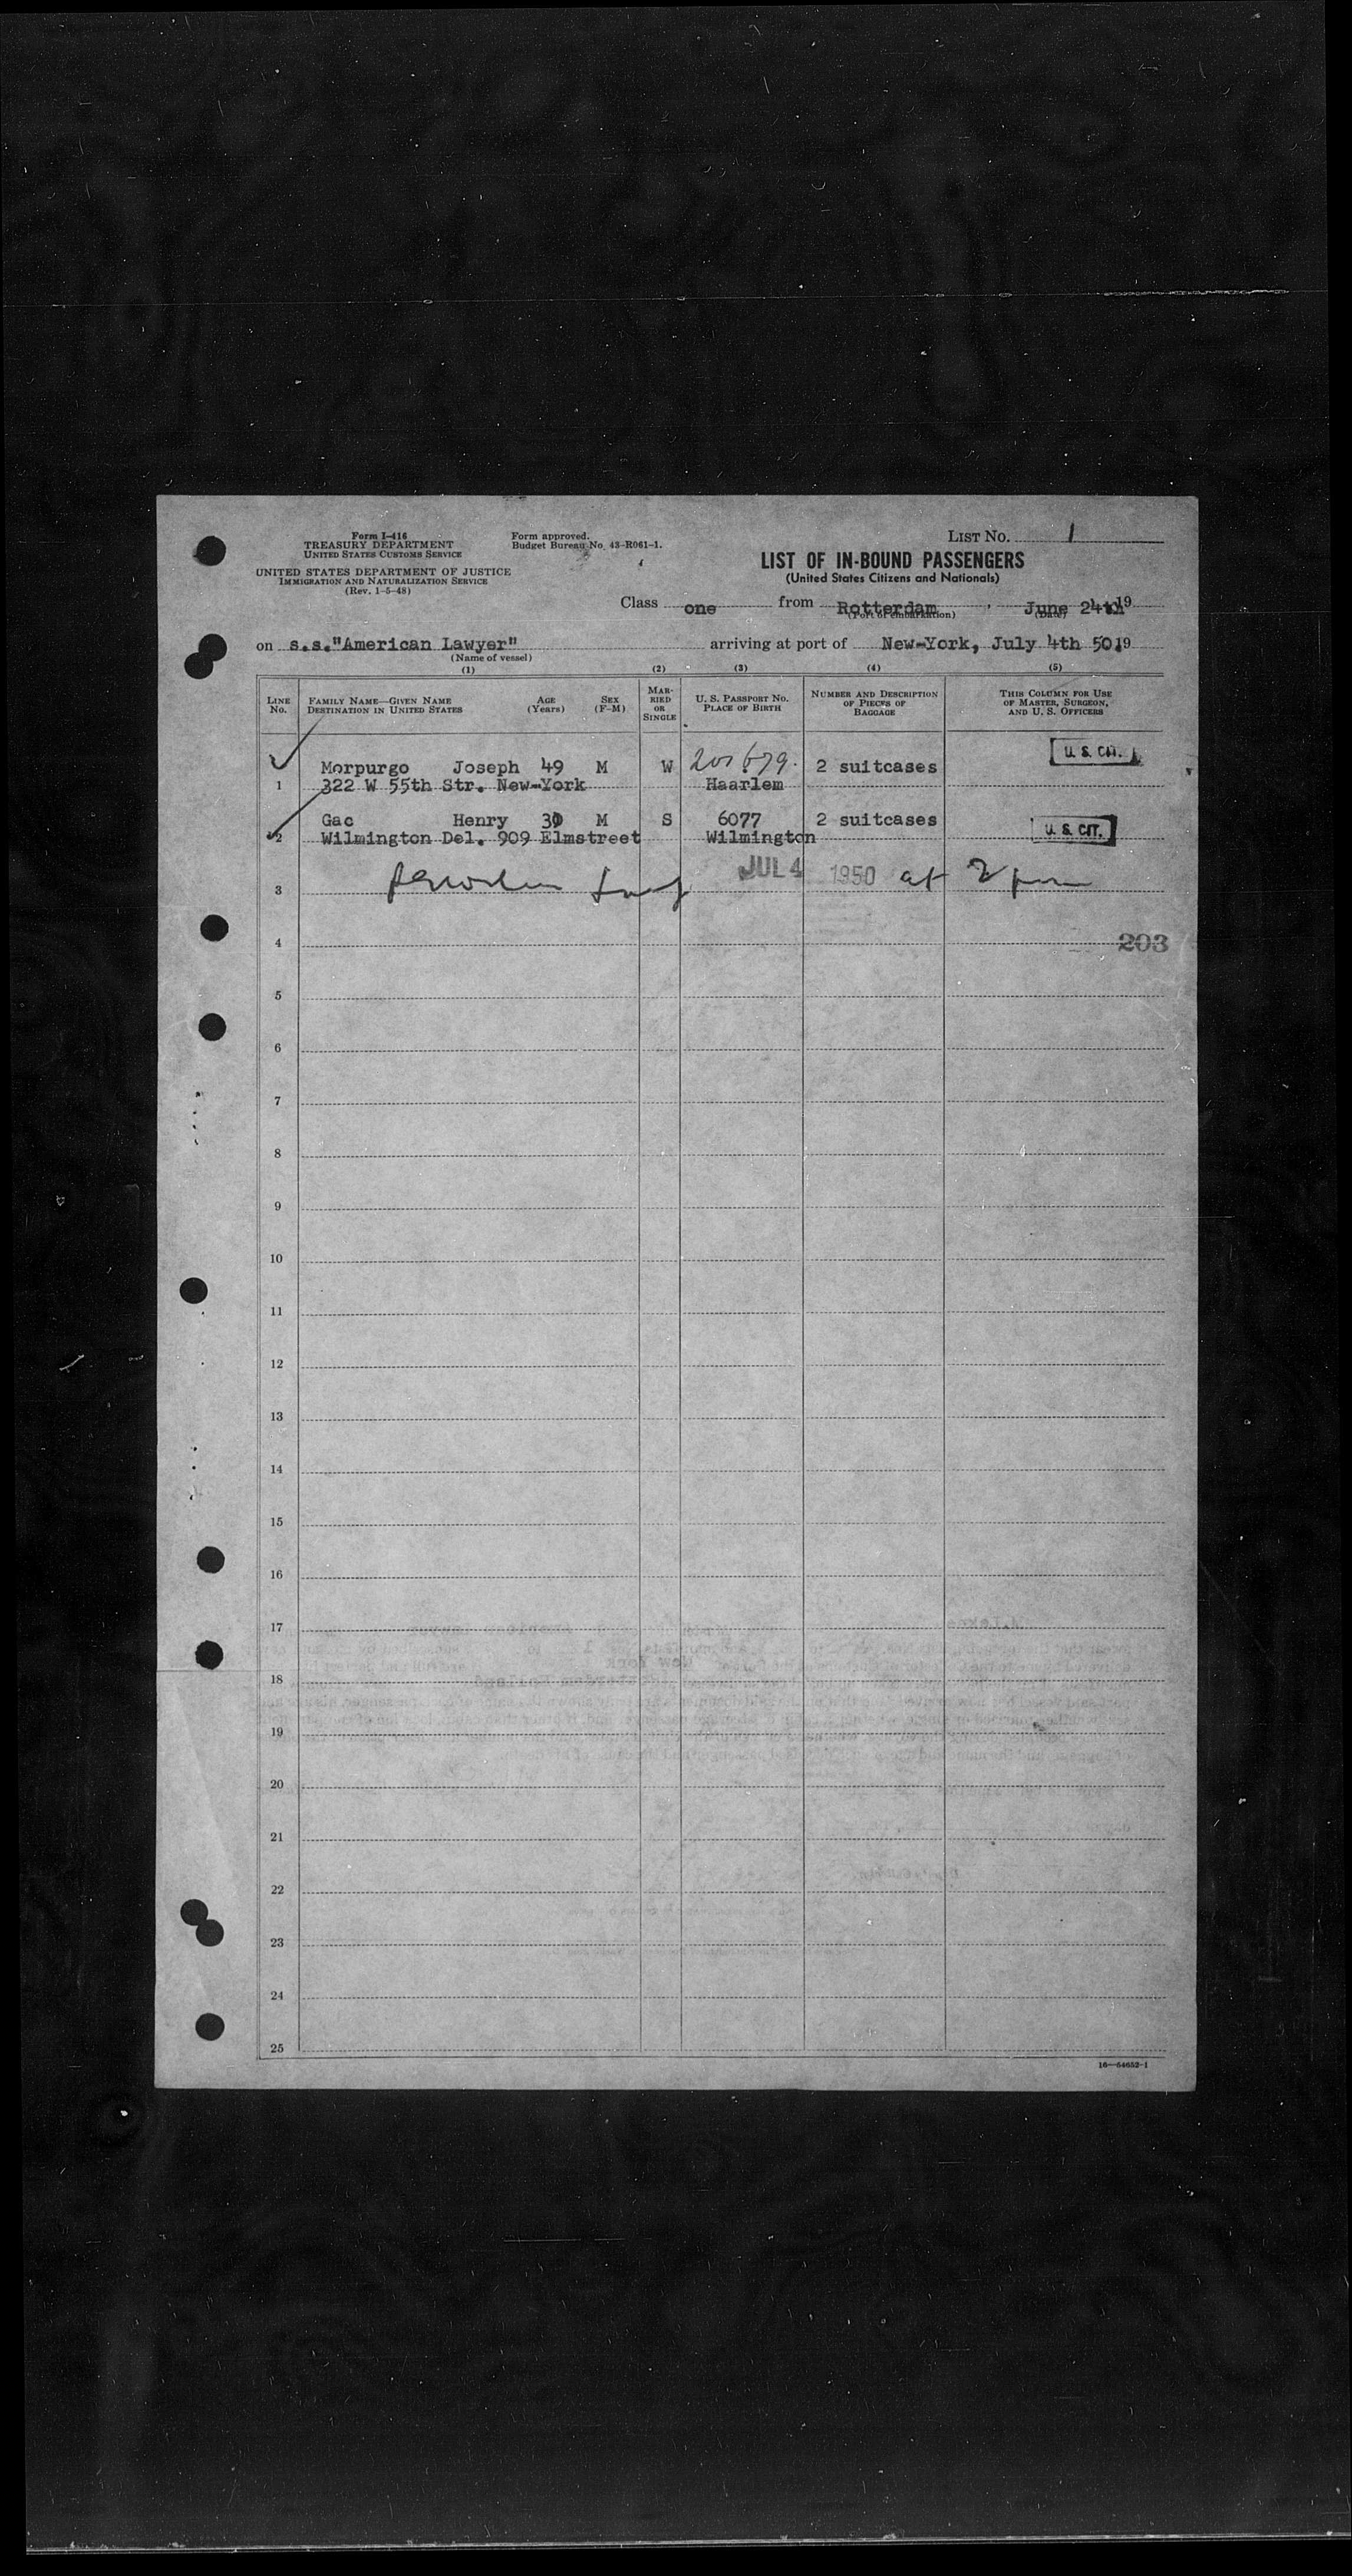 Form I-416
TREASURY DEPARTMENT
UNITED STATES CUSTOMS SERVICE
UNITED STATES DEPARTMENT OF JUSTICE
IMMIGRATION AND NATURALIZATION SERVICE
(Rev. 1-5-48)
Form approved.
Budget Bureau No. 43-R061-1.
LIST No. 1
LIST OF IN-BOUND PASSENGERS
(United States Citizens and Nationals)
Class one from Rotterdam, June 24th 19
(Port of embarkation) (Date)
on s.s."American Lawyer" arriving at port of New-York, July 4th 50 19
(Name of vessel)
(1) (2) (3) (4) (5)
LINE No. FAMILY NAME—GIVEN NAME DESTINATION IN UNITED STATES AGE (Years) SEX (F-M) MARRIED OR SINGLE U. S. PASSPORT NO. PLACE OF BIRTH NUMBER AND DESCRIPTION OF PIECES OF BAGGAGE THIS COLUMN FOR USE OF MASTER, SURGEON, AND U. S. OFFICERS
Morpurgo Joseph 49 M W 201679. 2 suitcases U. S. CIT.
1 322 W 55th Str. New-York Haarlem
Gac Henry 39 M S 6077 2 suitcases U. S. CIT.
2 Wilmington Del. 909 Elmstreet Wilmington
3 JUL 4 1950 at 2 pm
4 203
5
6
7
8
9
10
11
12
13
14
15
16
17
18
19
20
21
22
23
24
25
16—64652-1